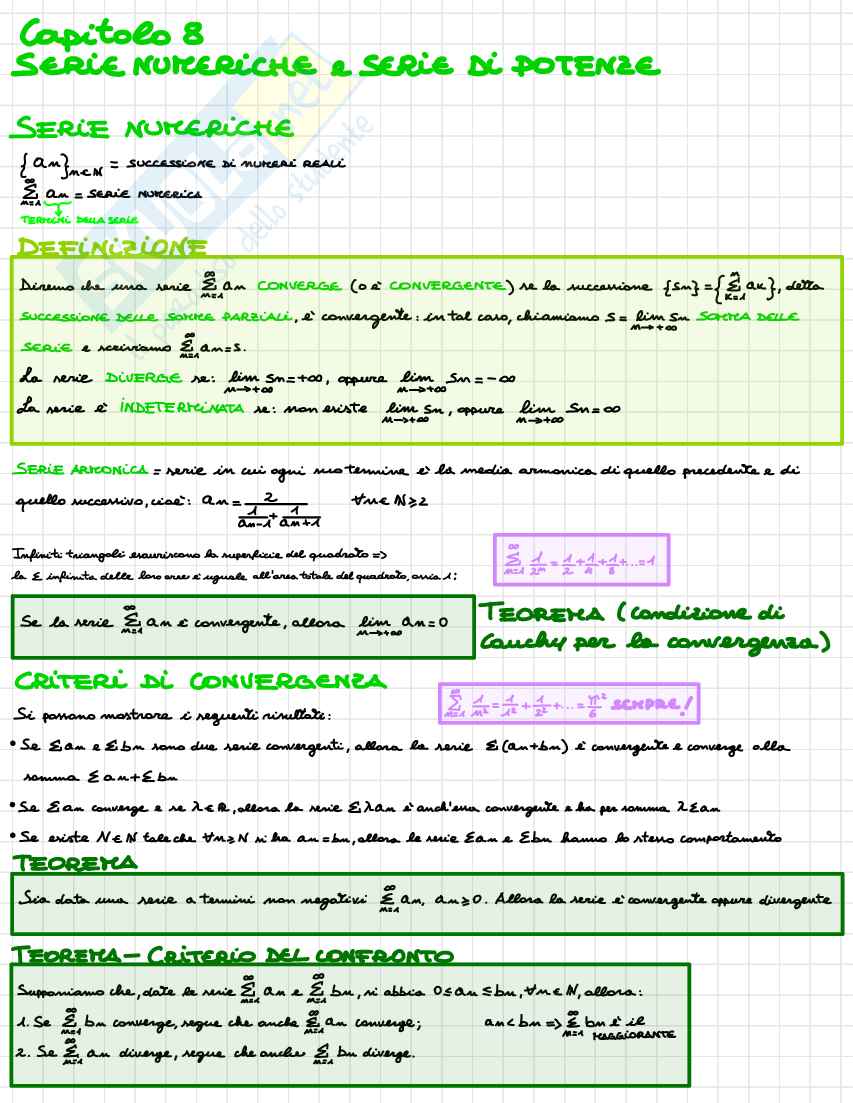 Capitolo 8
SERIE NUMERICHE e SERIE DI POTENZE
SERIE NUMERICHE
{an}n∈N = SUCCESSIONE DI NUMERI REALI
∞Σn=1 an = SERIE NUMERICA
TERMINI DELLA SERIE
DEFINIZIONE
Diremo che una serie ∞Σn=1 an CONVERGE (o è CONVERGENTE) se la successione {Sn} = {nΣk=1 ak}, detta
SUCCESSIONE DELLE SOMME PARZIALI, è convergente: in tal caso, chiamiamo S = lim n→+∞ Sn SOMMA DELLE
SERIE e scriviamo ∞Σn=1 an=S.
La serie DIVERGE se: lim n→+∞ Sn=+∞, oppure lim n→+∞ Sn=-∞
La serie è INDETERMINATA se: non esiste lim n→+∞ Sn, oppure lim n→+∞ Sn=∞
SERIE ARMONICA = serie in cui ogni suo termine è la media armonica di quello precedente e di
quello successivo, cioè: an = 2/(1/an-1 + 1/an+1) ∀n∈N≥2
Infiniti triangoli esauriscono la superficie del quadrato =>
la Σ infinita delle loro aree è uguale all'area totale del quadrato, ossia 1:
∞Σn=1 1/2ⁿ = 1/2 + 1/4 + 1/8 + ... = 1
Se la serie ∞Σn=1 an è convergente, allora lim n→+∞ an=0
TEOREMA (condizione di
Cauchy per la convergenza)
CRITERI DI CONVERGENZA
∞Σn=1 1/n² = 1/1² + 1/2² + ... = π²/6 SEMPRE!
Si possono mostrare i seguenti risultati:
• Se Σan e Σbn sono due serie convergenti, allora la serie Σ(an+bn) è convergente e converge alla
somma Σan+Σbn
• Se Σan converge e se λ∈R, allora la serie Σλan è anch'essa convergente e ha per somma λΣan
• Se esiste N∈N tale che ∀n≥N si ha an=bn, allora le serie Σan e Σbn hanno lo stesso comportamento
TEOREMA
Sia data una serie a termini non negativi ∞Σn=1 an, an≥0. Allora la serie è convergente oppure divergente
TEOREMA - CRITERIO DEL CONFRONTO
Supponiamo che, date le serie ∞Σn=1 an e ∞Σn=1 bn, si abbia 0≤an≤bn, ∀n∈N, allora:
1. Se ∞Σn=1 bn converge, segue che anche ∞Σn=1 an converge; an<bn => ∞Σn=1 bn è il
MAGGIORANTE
2. Se ∞Σn=1 an diverge, segue che anche ∞Σn=1 bn diverge.